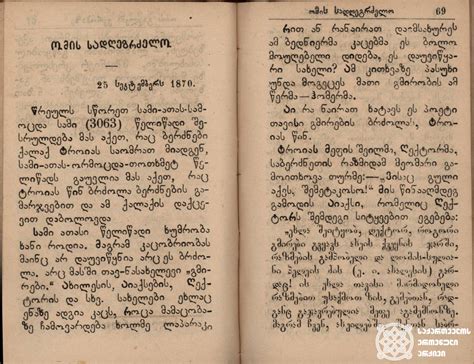 ომის სადღეგრძელო
25 სექტემბერს 1870.
წრეულს სწორეთ სამი-ათას-სამ-
ოცდა სამი (3063) წელიწადი შე-
სრულდება მას აქეთ, რაც ბერძნები
ქალაქ ტროიას საომრათ მიადგნენ,
სამი-ათას-ორმოცდა-თოთხმეტ წე-
ლიწადს გაუვლია მას აქეთ, რაც
ტროიას წინ ბრძოლა ბერძნების გა-
მარჯვებით და ამ ქალაქის დაქცე-
ვით დაბოლოვდა
სამი ათასი წელიწადი ხუმრობა
ხანი როდია, მაგრამ კაცობრიობას
მაინც არ დაუვიწყნია არც ეს ბრძო-
ლა, არც მასში თავ-ნასახელევი «გმი-
რები.» ახილესის, აიაქსების, ჰექ-
ტორის და სხ. სახელები ეხლაც
ენაზე ადგია კაცს, როცა მამაცობა-
ზე ჩამოვარდება ხოლმე ლაპარაკი
ომის სადღეგრძელო 69
რით ან რანაირათ დაიმსახურეს
ამ ბედნიერმა კაცებმა ეს ბოლო
მოუღებელი დიდება, ეს დაუვიწყა-
რი სახელი? ამ კითხვაზე პასუხი
უნდა მოგვცეს მათი გმირობის ამ
წერმა—ჰომერმა.
აი რა ნაირათ ხატავს ეს პოეტი
თავისი გმირების ბრძოლას, ტრო-
იას წინ.
ტროიას მეფის შვილმა, ჰექტორმა,
საბერძნეთის რაზმიდამ მეომარი გა-
მოითხოვა თურმე:—„მისაც გული
აქვს, შემეტაკოსო!“ მის წინააღმდეგ
გამოდის აიაქსი, რომელიც ჰექ-
ტორს შემდეგი სიტყვებით ეგებება:
«ეხლა შეიტყობ, ჰექტორ, როგორი
გმირები გვყავს
საქართველოს
ეროვნული
არქივი